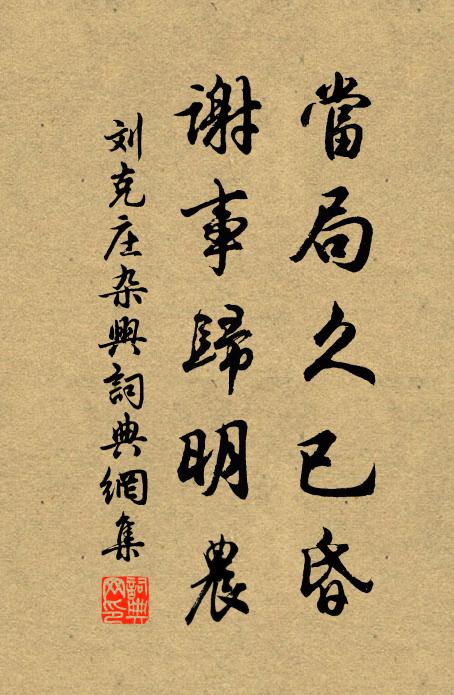 當局久已昏
謝事歸明農
刘克庄杂興詞典網集
詞典網印